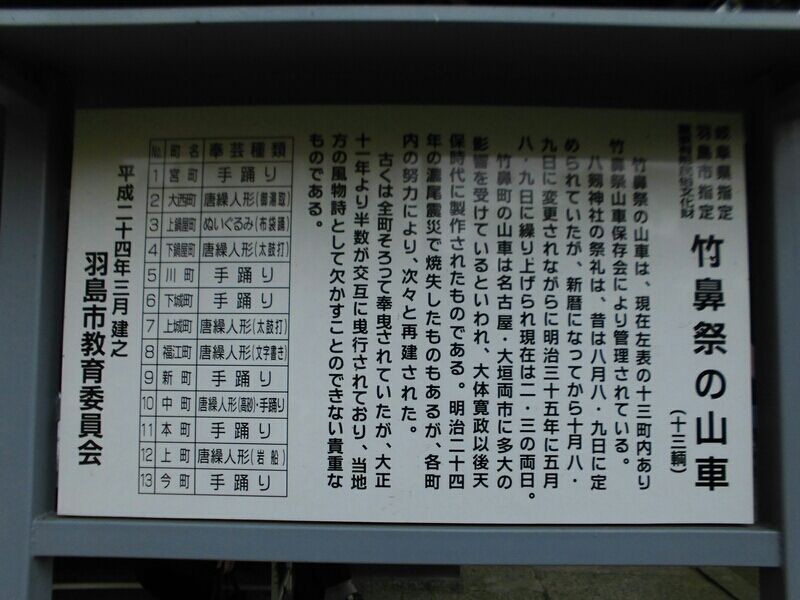 岐阜県指定
羽島市指定
重要有形民俗文化財
竹鼻祭の山車
(十三輌)
竹鼻祭の山車は、現在左表の十三町内あり
竹鼻祭山車保存会により管理されている。
八剱神社の祭礼は、昔は八月八・九日に定
められていたが、新暦になってから十月八・
九日に変更されながらに明治三十五年に五月
八・九日に繰り上げられ現在は二・三の両日。
竹鼻町の山車は名古屋・大垣両市に多大の
影響を受けているといわれ、大体寛政以後天
保時代に製作されたものである。明治二十四
年の濃尾震災で焼失したものもあるが、各町
内の努力により、次々と再建された。
古くは全町そろって奉曳されていたが、大正
十一年より半数が交互に曳行されており、当地
方の風物詩として欠かすことのできない貴重な
ものである。
№ 町名 奉芸種類
1 宮町 手踊り
2 大西町 唐繰人形(御湯取)
3 上鍋屋町 ぬいぐるみ(布袋踊)
4 下鍋屋町 唐繰人形(太鼓打)
5 川町 手踊り
6 下城町 手踊り
7 上城町 唐繰人形(太鼓打)
8 福江町 唐繰人形(文字書き)
9 新町 手踊り
10 中町 唐繰人形(高砂)・手踊り
11 本町 手踊り
12 上町 唐繰人形(岩船)
13 今町 手踊り
平成二十四年三月建之
羽島市教育委員会